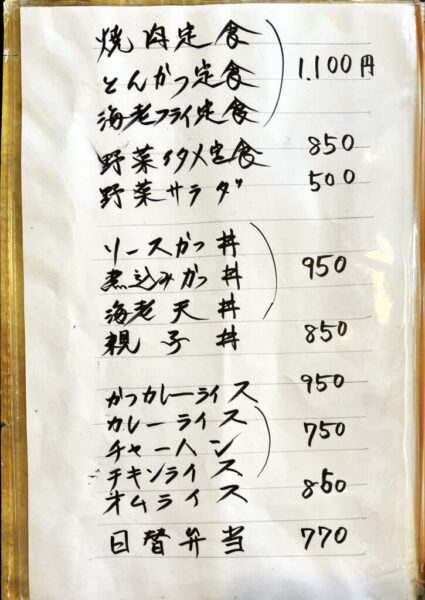 焼肉定食
とんかつ定食 1,100円
海老フライ定食
野菜イタメ定食 850
野菜サラダ 500
ソースかつ丼
煮込みかつ丼 950
海老天丼
親子丼 850
かつカレーライス 950
カレーライス
チャーハン 750
チキンライス
オムライス 850
日替弁当 770